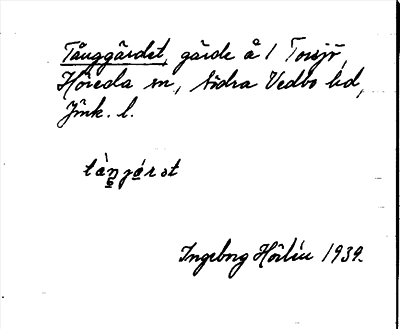 Tånggärdet, gärde å 1 Torsjö,
Höreda sn, Södra Vedbo hd,
Jönk. l.
Ingeborg Hörlin 1939.